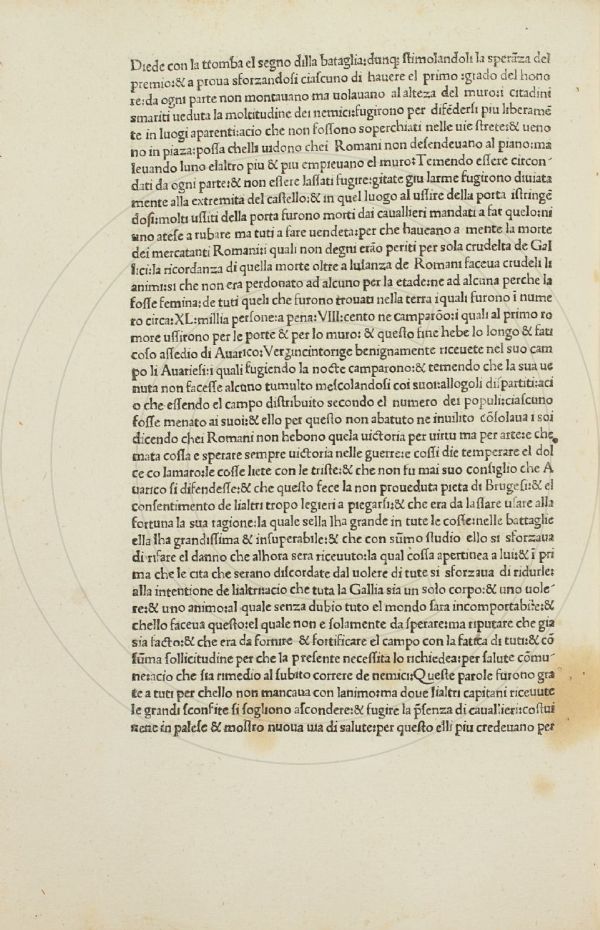 Diede con la ttomba el segno dilla bataglia:dunqꝫ stimolandoli la sperāza del
premio:& a proua sforzandosi ciascuno di hauere el primo :grado del hono
re:da ogni parte non montauano ma uolauano al alteza del muro:i citadini
smariti ueduta la moltitudine dei nemici:fugirono per difēdersi piu liberamē
te in luogi aparenti:acio che non fossono soperchiati nelle uie strete:& ueno
no in piaza:possa chelli uidono chei Romani non desendeuano al piano:ma
leuando luno elaltro piu & piu empieuano el muro:Temendo essere circon
dati da ogni parte:& non essere lassati fugire:gitate giu larme fugirono diuiata
mente alla extremita del castello:& in quel luogo al ussire della porta istringē
dosi:molti ussiti della porta furono morti dai cauallieri mandati a far quelo:ni
uno atese a rubare ma tuti a fare uendeta:per che haueano a mente la morte
dei mercatanti Romani:i quali non degni erão periti per sola crudelta de Gal
lici:la ricordanza di quella morte oltre a lusanza de Romani faceua crudeli li
animi:si che non era perdonato ad alcuno per la etade:ne ad alcuna perche la
fosse femina:de tuti queli che furono trouati nella terra iquali furono i nume
ro circa:XL:millia persone:a pena:VIII:cento ne camparōo:i quali al primo ro
more ussirono per le porte & per lo muro: & questo fine hebe lo longo & fati
coso assedio di Auarico:Vergincintorige benignamente riceuete nel suo cam
po li Auariesi:i quali fugiendo la nocte camparono:& temendo che la sua ue
nuta non facesse alcuno tumulto mescolandosi coi suoi:allogoli dispartiti:aci
o che essendo el campo distribuito secondo el numero dei populi:ciascuno
fosse menato ai suoi:& ello per questo non abatuto ne inuilito cōsolaua i soi
dicendo chei Romani non hebono quela uictoria per uirtu ma per arte:e che
mata cossa e sperare sempre uictoria nelle guerre:e cossi die temperare el dol
ce co lamaro:le cosse liete con le triste:& che non fu mai suo consiglio che A
uarico si difendesse:& che questo fece la non proueduta pieta di Brugesi:& el
consentimento de lialtri tropo legieri a piegarsi:& che era da lassare usare alla
fortuna la sua ragione:la quale sella lha grande in tute le cosse:nelle battaglie
ella lha grandissima & insuperabile:& che con sūmo studio ello si sforzaua
di rifare el danno che alhora sera riceuuto:la qual cossa apertinea a lui:& ī pri
ma che le cita che serano discordate dal uolere di tute si sforzaua di ridurle:
alla intentione de lialtri:acio che tuta la Gallia sia un solo corpo:& uno uole-
re:& uno animo:al quale senza dubio tuto el mondo sara incomportabile:&
chello faceua questo:el quale non e solamente da sperare:ma riputare che gia
sia facto:& che era da fornire & fortificare el campo con la fatica di tuti:& cō
sūma sollicitudine per che la presente necessita lo richiedea:per salute cōmu-
ne:acio che sia rimedio al subito correre de nemici:Queste parole furono gra
te a tuti per chello non mancaua con lanimo:ma doue lialtri capitani riceuute
le grandi sconfite si sogliono ascondere:& fugire la p̄senza di cauallieri:costui
uene in palese & mostro nuoua uia di salute:per questo elli piu credeuano per